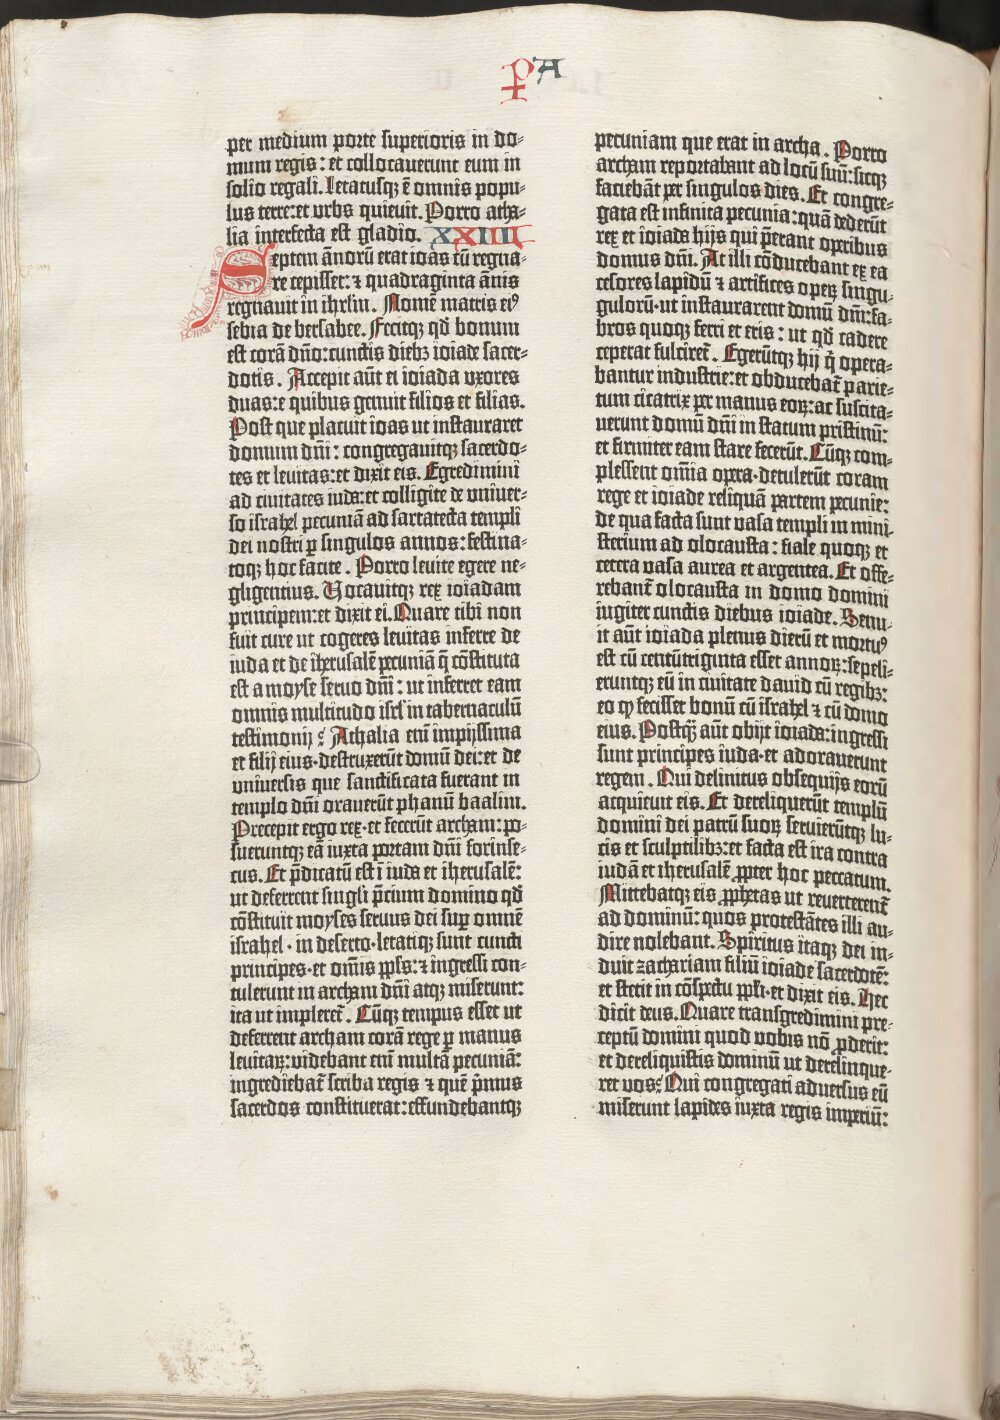 P A
per medium porte superioris in do-
mum regis: et collocaverunt eum in
solio regali. Letatusqȝ ē omnis popu-
lus terre: et urbs quievit. Porro atha-
lia interfecta est gladio. XXIIII
Septem ānorū erat ioas cū regna-
re cepisset: ⁊ quadraginta ānis
regnauit in ihrlm. Nomē matris eiꝰ
sebia de bersabee. Fecitqȝ qd̄ bonum
est corā dn̄o: cunctis diebȝ ioiade sacer-
dotis. Accepit aūt ei ioiada vxores
duas: e quibus genuit filios et filias.
Post que placuit ioas ut instauraret
domum dn̄i: congregauitqȝ sacerdo-
tes et leuitas: et dixit eis. Egredimini
ad ciuitates iuda: et colligite de vniuer-
so israhel pecuniā ad sartatecta templi
dei nostri ꝑ singulos annos: festina-
toqȝ hoc facite. Porro leuite egere ne-
gligentius. Vocauitqȝ rex ioiadam
principem: et dixit ei. Quare tibi non
fuit cure ut cogeres leuitas inferre de
iuda et de iherusalē pecuniā q̄ cōstituta
est a moyse seruo dn̄i: ut inferret eam
omnis multitudo isrl' in tabernaculū
testimonij? Athalia eni impijssima
et filij eius· destruxerūt domū dei: et de
vniuersis que sanctificata fuerant in
templo dn̄i ornauerūt phanū baalim.
Precepit ergo rex· et fecerūt archam: po-
sueruntqȝ eā iuxta portam dn̄i forinse-
cus. Et p̄dicatū est ī iuda et iherusalē:
ut deferrent singli p̄cium domino qd̄
cōstituit moyses seruus dei suꝑ omnē
israhel· in deserto· letatiqȝ sunt cuncti
principes· et om̄is ppl's: ⁊ ingressi con-
tulerunt in archam dn̄i atqȝ miserunt:
ita ut impleret̄. Cūqȝ tempus esset ut
deferrent archam corā rege ꝑ manus
leuitaꝝ: videbant eni multā pecuniā:
ingrediebat̄ scriba regis ⁊ quē p̄mus
sacerdos constituerat: effundebantqȝ
pecuniam que erat in archa. Porro
archam reportabant ad locū suū: sicqȝ
faciebāt per singulos dies. Et congre-
gata est infinita pecunia: quā dederūt
rex et ioiada hijs qui p̄erant operibus
domus dn̄i. At illi cōducebant ex ea
cesores lapidū ⁊ artifices operꝝ singu-
gulorū· ut instaurarent domū dn̄i: fa-
bros quoqȝ ferri et eris: ut qd̄ cadere
ceperat fulciret̄. Egerūtqȝ hij q̄ opera-
bantur industrie: et obducebat̄ parie-
tum cicatrix per manus eoꝝ: ac suscita-
uerunt domū dn̄i in statum pristinū:
et firmiter eam stare fecerūt. Cūqȝ com-
plessent om̄ia opera· detulerūt coram
rege et ioiade reliquā partem pecunie:
de qua facta sunt vasa templi in mini-
sterium ad olocausta: fiale quoqȝ et
cetera vasa aurea et argentea. Et offe-
rebant̄ olocausta in domo domini
iugiter cunctis diebus ioiade. Senu-
it aūt ioiada plenus dierū et mortuꝰ
est cū centūtriginta esset annoꝝ: sepeli-
eruntqȝ eū in ciuitate dauid cū regibȝ:
eo ꝙ fecisset bonū cū israhel ⁊ cū domo
eius. Postq̄ȝ aūt obijt ioiada: ingressi
sunt principes iuda· et adorauerunt
regem. Qui delinitus obsequijs eorū
acquieuit eis. Et dereliquerūt templū
domini dei patrū suoꝝ seruierūtqȝ lu-
cis et sculptilibȝ: et facta est ira contra
iudā et iherusalē ꝓpter hoc peccatum.
Mittebatqȝ eis ꝓphetas ut reuerterent̄
ad dominū: quos protestātes illi au-
dire nolebant. Spiritus itaqȝ dei in-
duit zachariam filiū ioiade sacerdotē:
et stetit in cōspectu ppl'i· et dixit eis. Hec
dicit deus. Quare transgredimini pre-
ceptū domini quod vobis nō ꝓderit:
et dereliquistis dominū ut derelinque-
ret vos? Qui congregati aduersus eū
miserunt lapides iuxta regis imperiū: